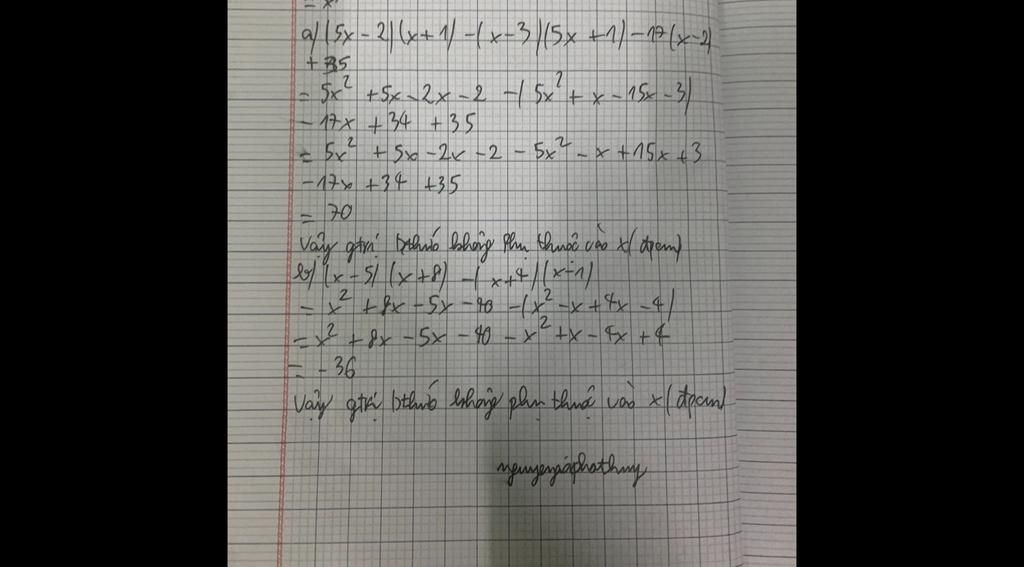 = x
a) (5x - 2) (x + 1) - (x - 3) (5x + 1) - 17(x - 2)
+ 35
= 5x² + 5x - 2x - 2 - (5x² + x - 15x - 3)
- 17x + 34 + 35
= 5x² + 5x - 2x - 2 - 5x² - x + 15x + 3
- 17x + 34 + 35
= 70
Vậy gtrị bthức không phụ thuộc vào x (đpcm)
b) (x - 5) (x + 8) - (x + 4) (x - 1)
= x² + 8x - 5x - 40 - (x² - x + 4x - 4)
= x² + 8x - 5x - 40 - x² + x - 4x + 4
= -36
Vậy gtrị bthức không phụ thuộc vào x (đpcm)